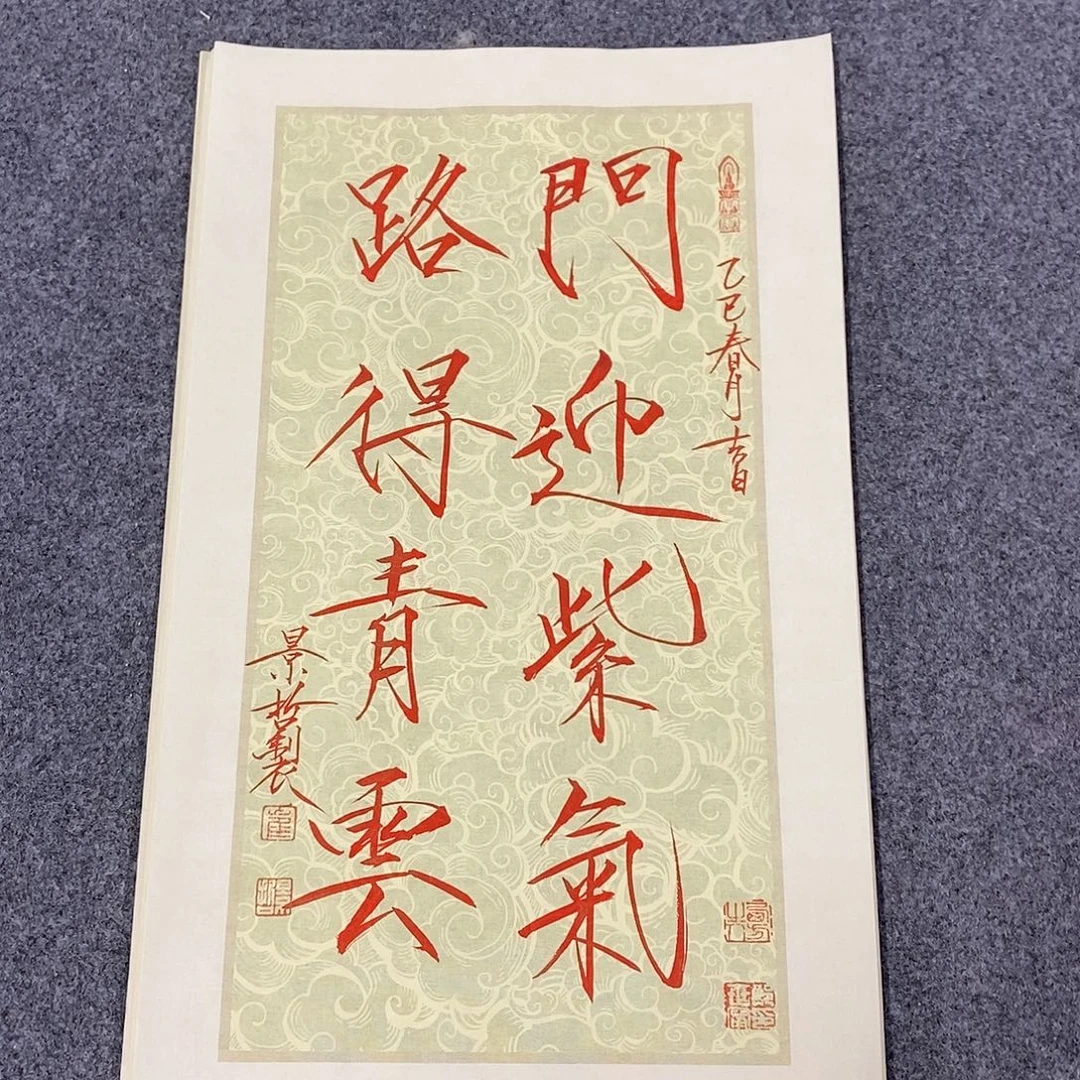 乙巳春月吉日
門迎紫氣
路得青雲
景哲製